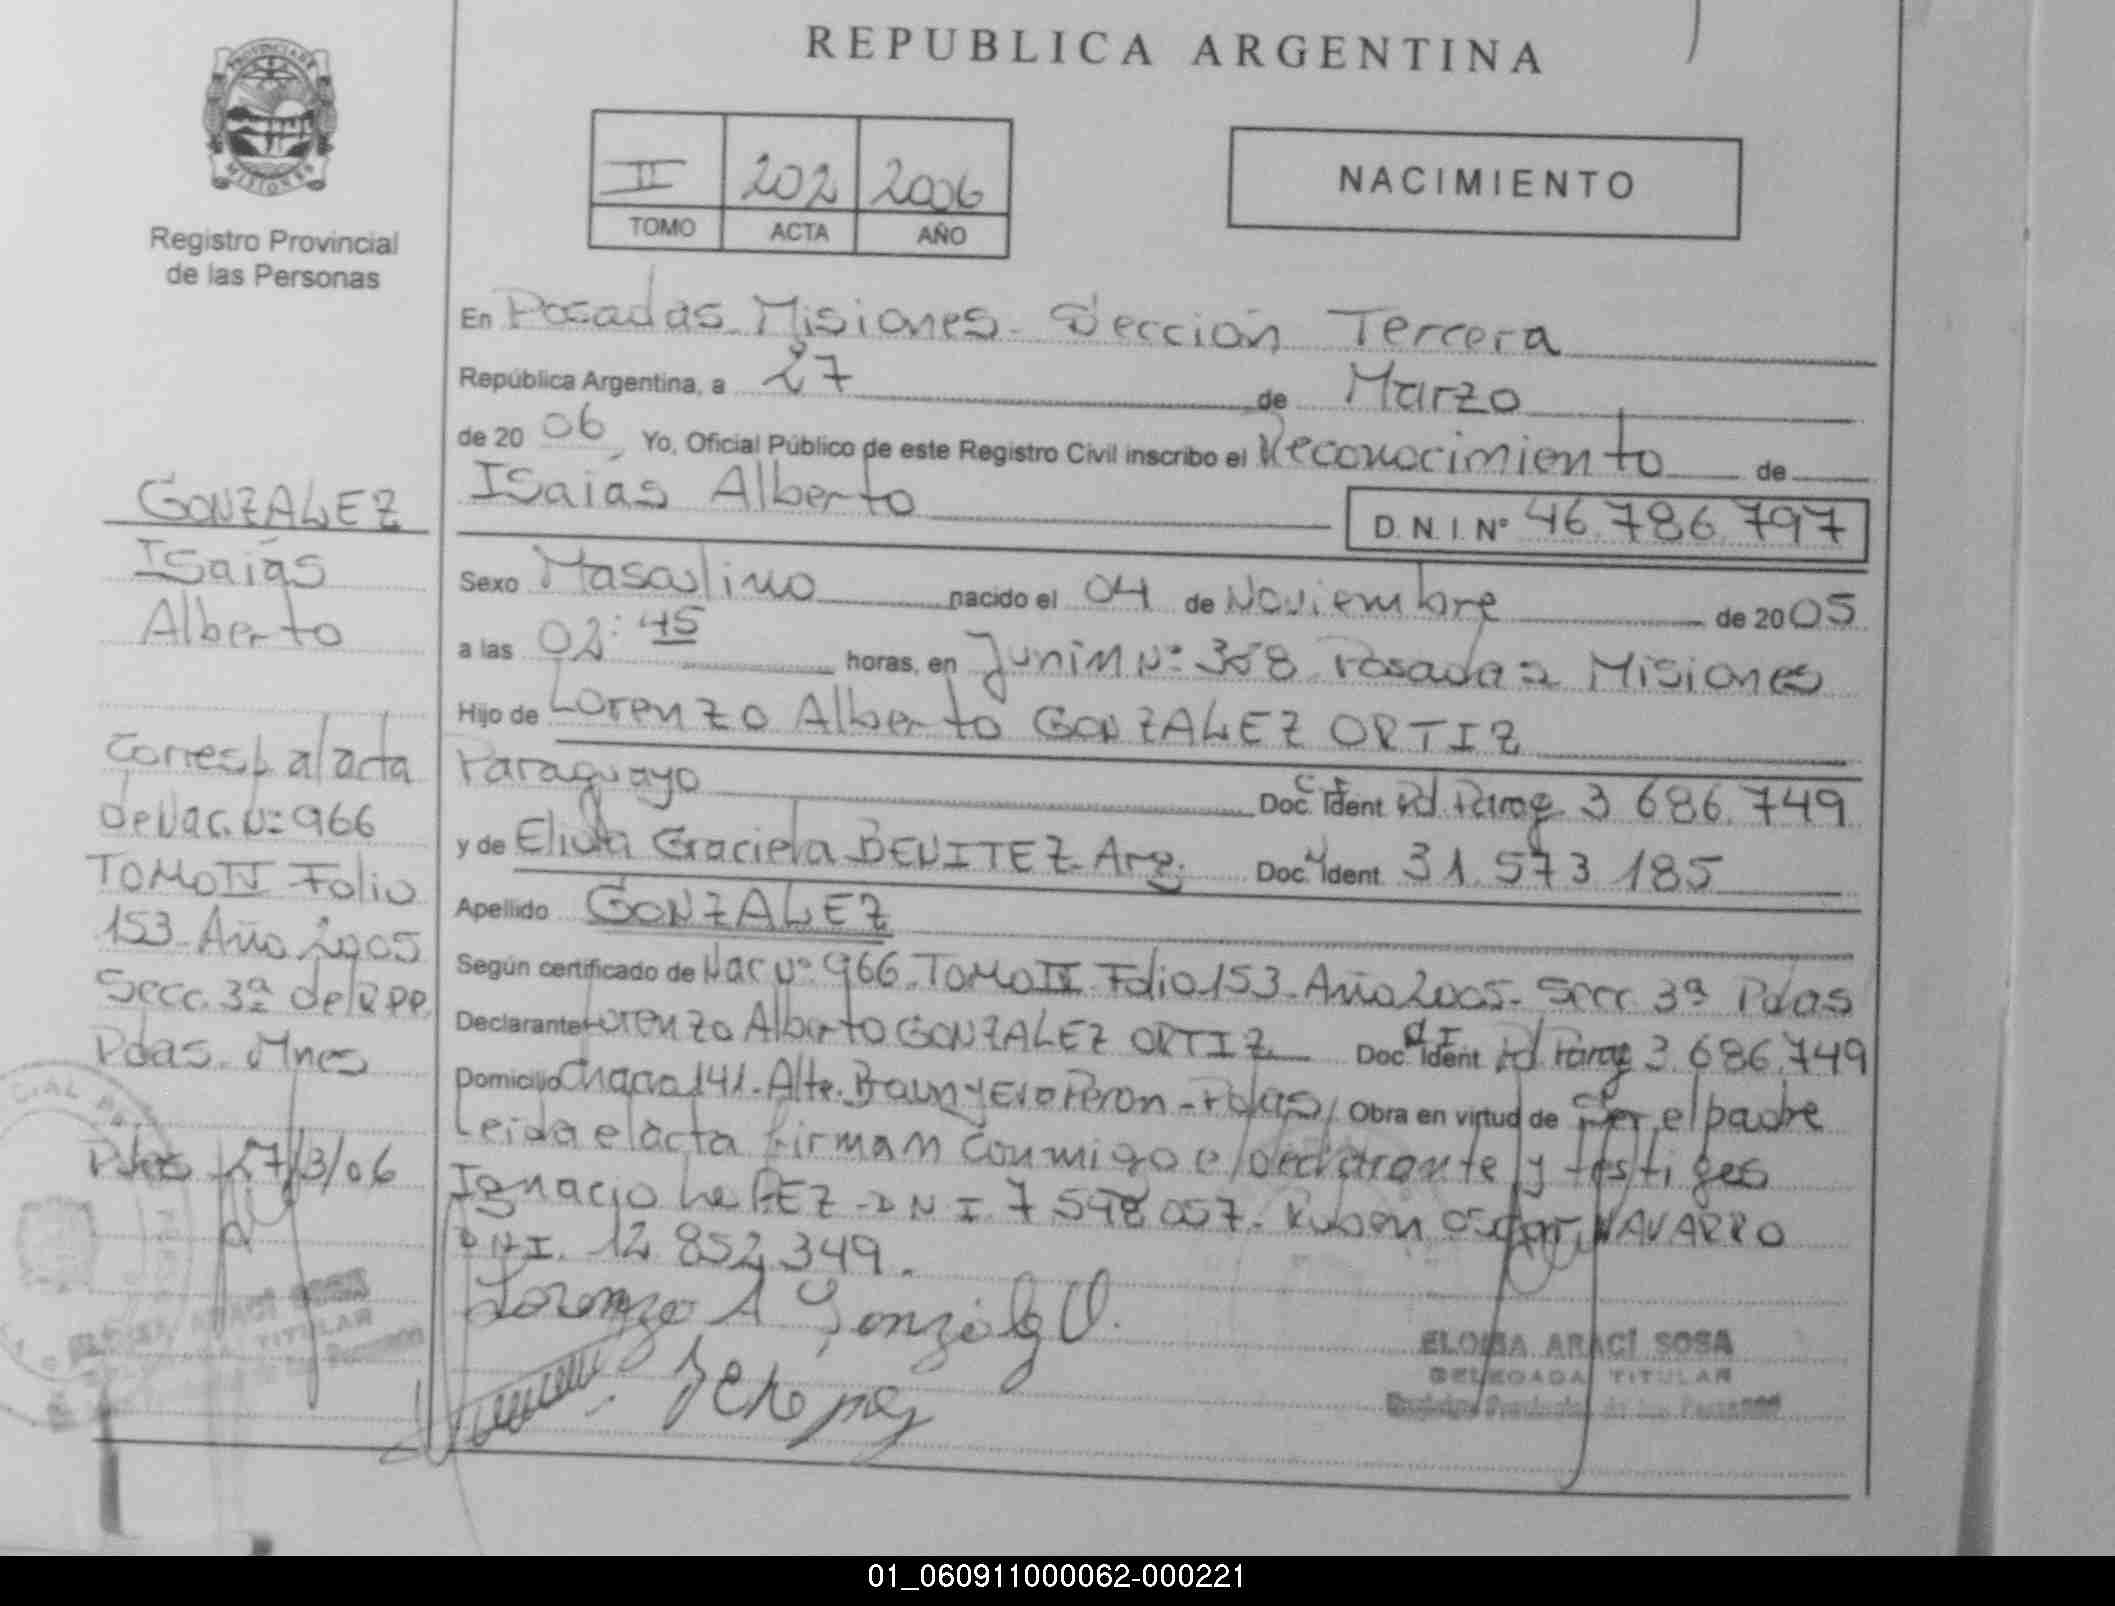 REPUBLICA ARGENTINA
PROVINCIA DE
MISIONES
Registro Provincial
de las Personas
II 202 2006
TOMO ACTA AÑO
NACIMIENTO
En Posadas Misiones - Sección Tercera
República Argentina, a 27 de Marzo
de 20 06 Yo, Oficial Público de este Registro Civil inscribo el Reconocimiento de
Isaías Alberto D.N.I. Nº 46.786.797
Sexo Masculino nacido el 04 de Noviembre de 2005
a las 02:45 horas, en Junín Nº 368 Posadas Misiones
Hijo de Lorenzo Alberto GONZALEZ ORTIZ
Paraguayo Doc. Ident. Pd. Parag 3 686.749
y de Graciela BENITEZ - Arg. Doc. Ident. 31.573 185
Apellido GONZALEZ
Según certificado de Nac Nº 966 - TOMO IV - Folio 153 - Año 2005 - Secc 3ª Pdas
Declarante Lorenzo Alberto GONZALEZ ORTIZ Doc. Ident Pd Parag 3.686.749
Domicilio Chaco 141 - Alte. Brown y Eva Peron - Pdas Obra en virtud de Ser el padre
Leida el acta firman conmigo el declarante y testigos
Ignacio - DNI 7.598.057 - Ruben Oscar NAVARRO
DNI. 12 852 349.
Lorenzo A González O.
ELOISA ARACÍ SOSA
DELEGADA TITULAR
Registro Provincial de las Personas
GONZALEZ
Isaías
Alberto
Corresp al acta
de Nac. Nº 966
TOMO IV Folio
153 - Año 2005
Secc. 3ª del RPP.
Pdas. Mnes
Pdas 27/3/06
ARACÍ SOSA
TITULAR
01_060911000062-000221